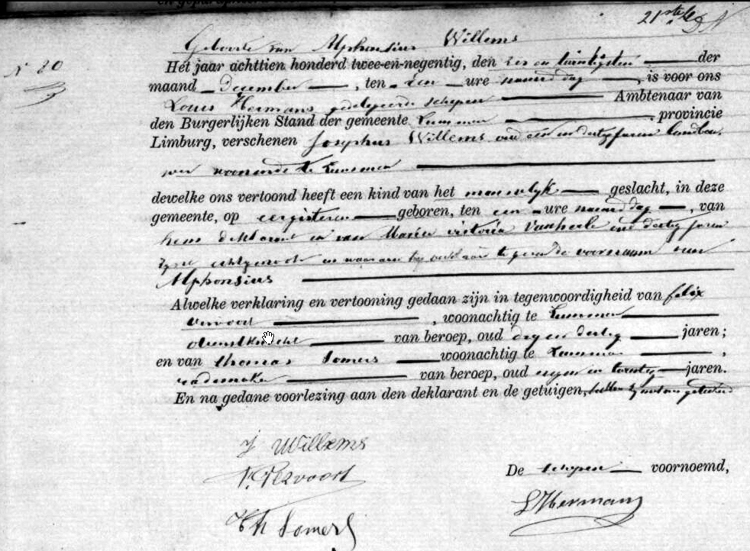 21ste
Geboorte van Alphonsius Willems
N° 80
Het jaar achttien honderd twee-en-negentig, den zes en twintigsten der
maand December, ten een ure namiddag, is voor ons
Louis Hermans gedelegeerde schepen Ambtenaar van
den Burgerlijken Stand der gemeente Lummen, provincie
Limburg, verschenen Josephus Willems oud een en dertig jaren landbou-
wer woonende te Lummen
dewelke ons vertoond heeft een kind van het mannelyk geslacht, in deze
gemeente, op eergisteren geboren, ten een ure namiddag, van
hem deklarant en van Maria Victoria Vanheele oud dertig jaren
zyne echtgenoote en waaraan hy verklaart te geven de voornaam van
Alphonsius
Alwelke verklaring en vertooning gedaan zijn in tegenwoordigheid van felix
vervoort, woonachtig te Lummen
dienstknecht van beroep, oud dryendertig jaren;
en van thomas Somers woonachtig te Lummen,
rademaker van beroep, oud negen en twintig jaren.
En na gedane voorlezing aan den deklarant en de getuigen, hebben zy met ons geteekend
J Willems
F. Vervoort
Th Somers
De schepen voornoemd,
L Hermans